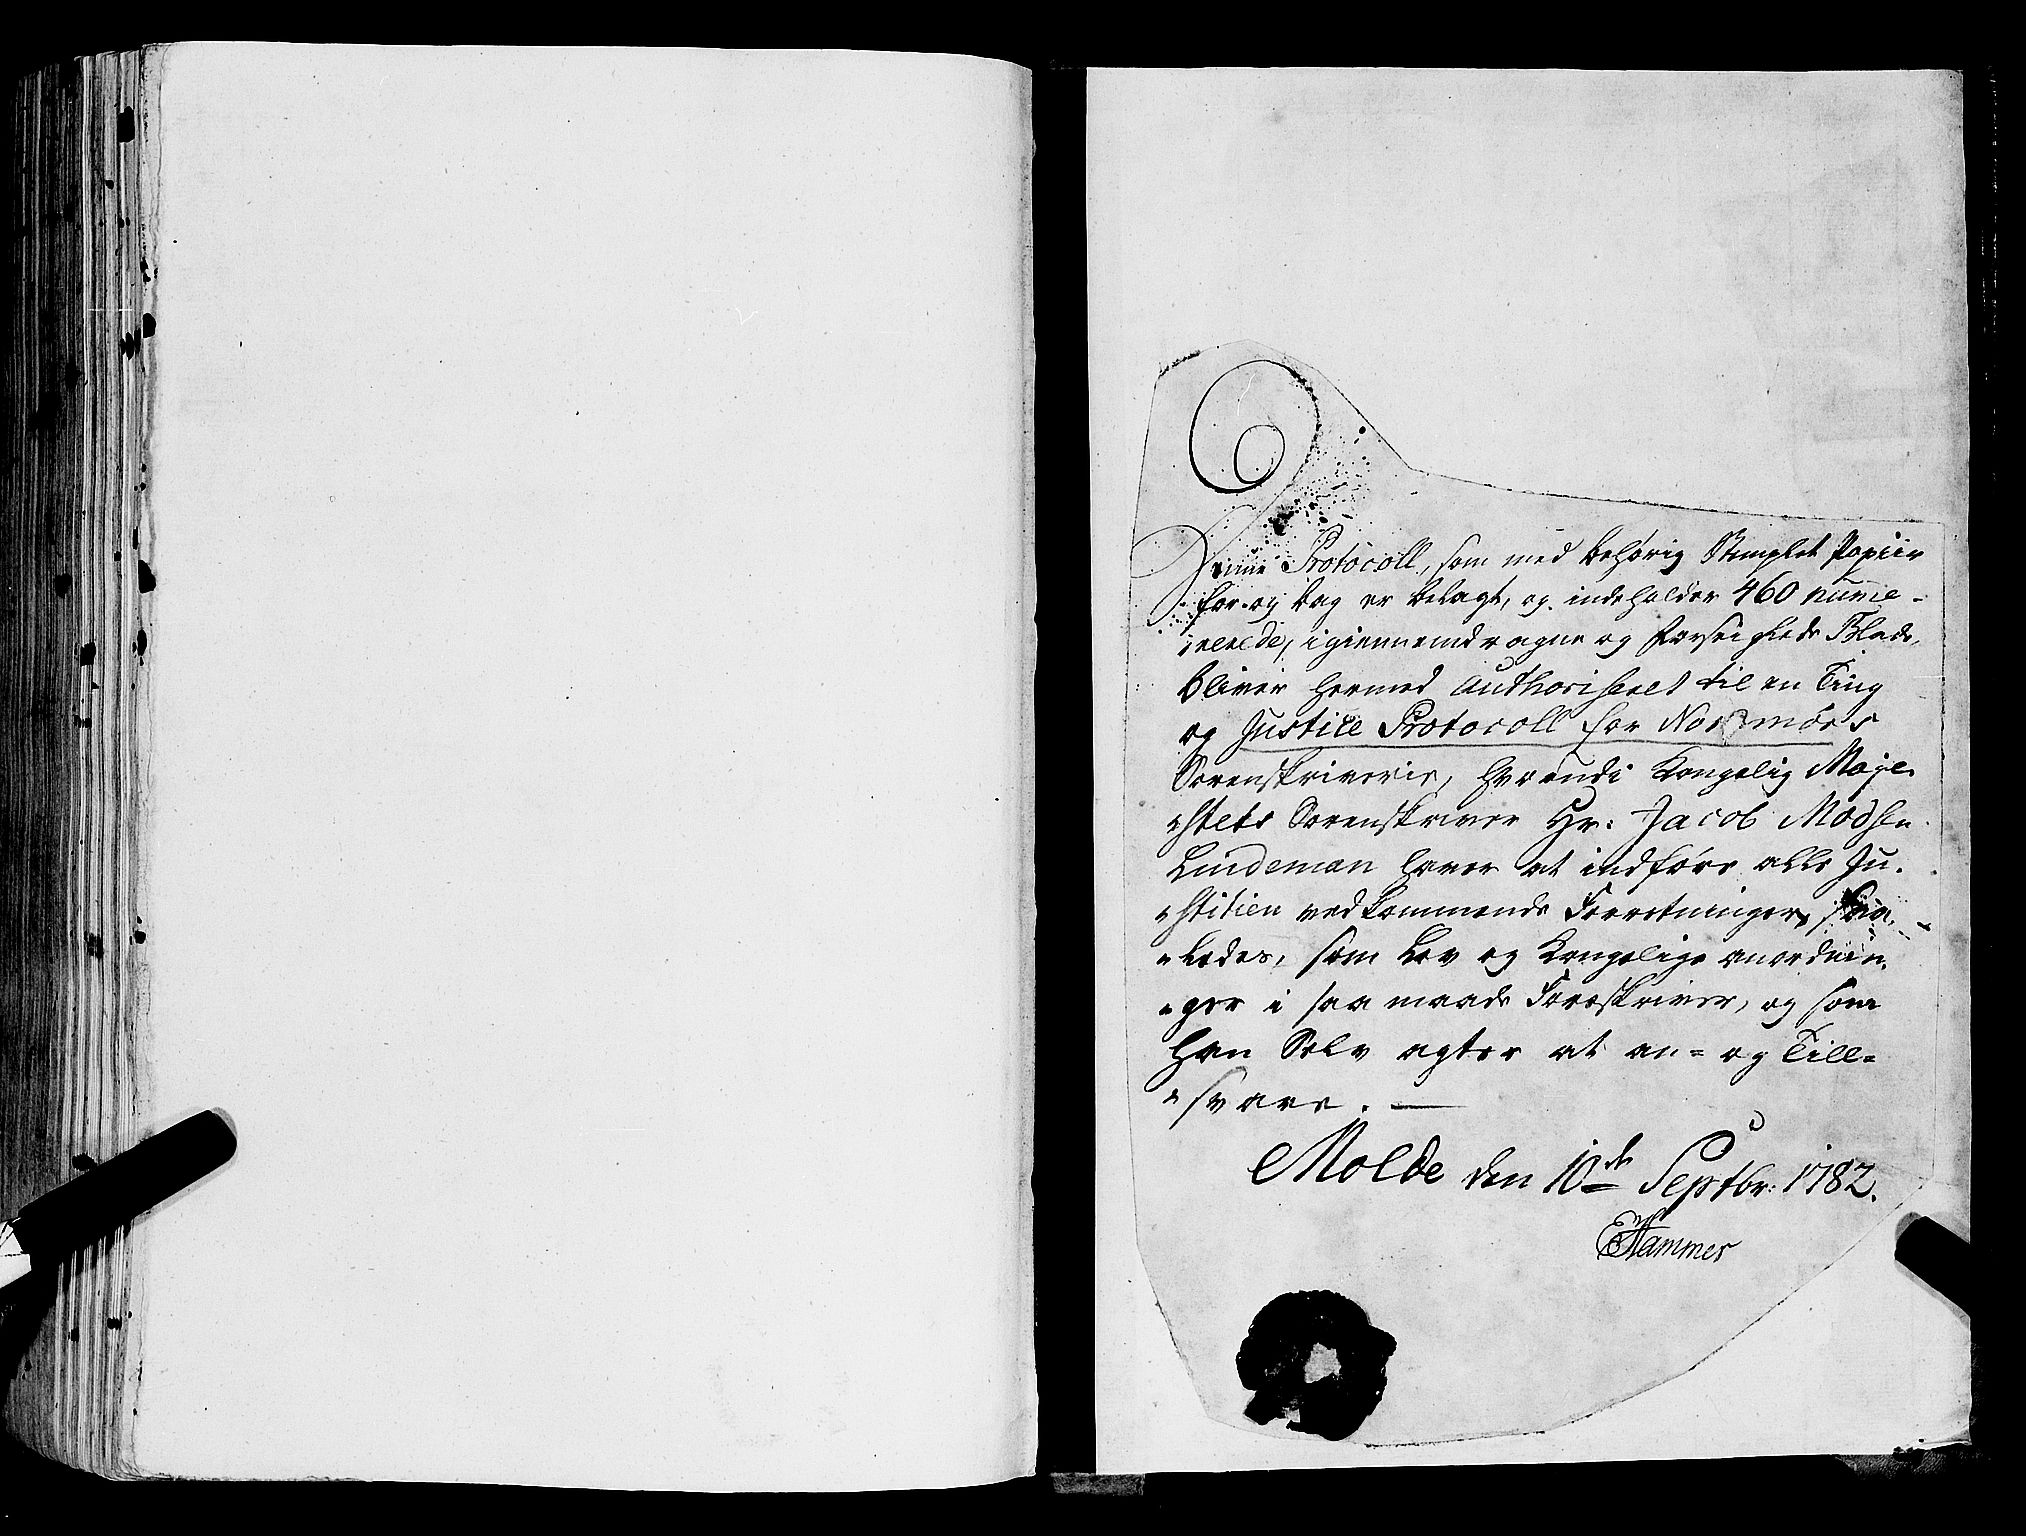 Denne Protocoll, som med behørig Stemplet Papiir
for og bag er belagt, og indeholder 460 nume-
rerede, igiennemdragne og forseiglede Blade,
bliver hermed Authoriseret til en Ting
og Justice Protocoll for Nordmørs
Sorenskriverie, hvorudi Kongelig Maje-
stets Sorenskriver Hr: Jacob Madsen
Lindeman haver at indføre alle Ju-
stitien vedkommende Forretninger, saa-
ledes, som Lov og Kongelige anordnin-
ger i saa maade Foreskriver, og som
han Selv agter at an- og Till-
svare.
Molde den 10de Septbr: 1782.
EHammer